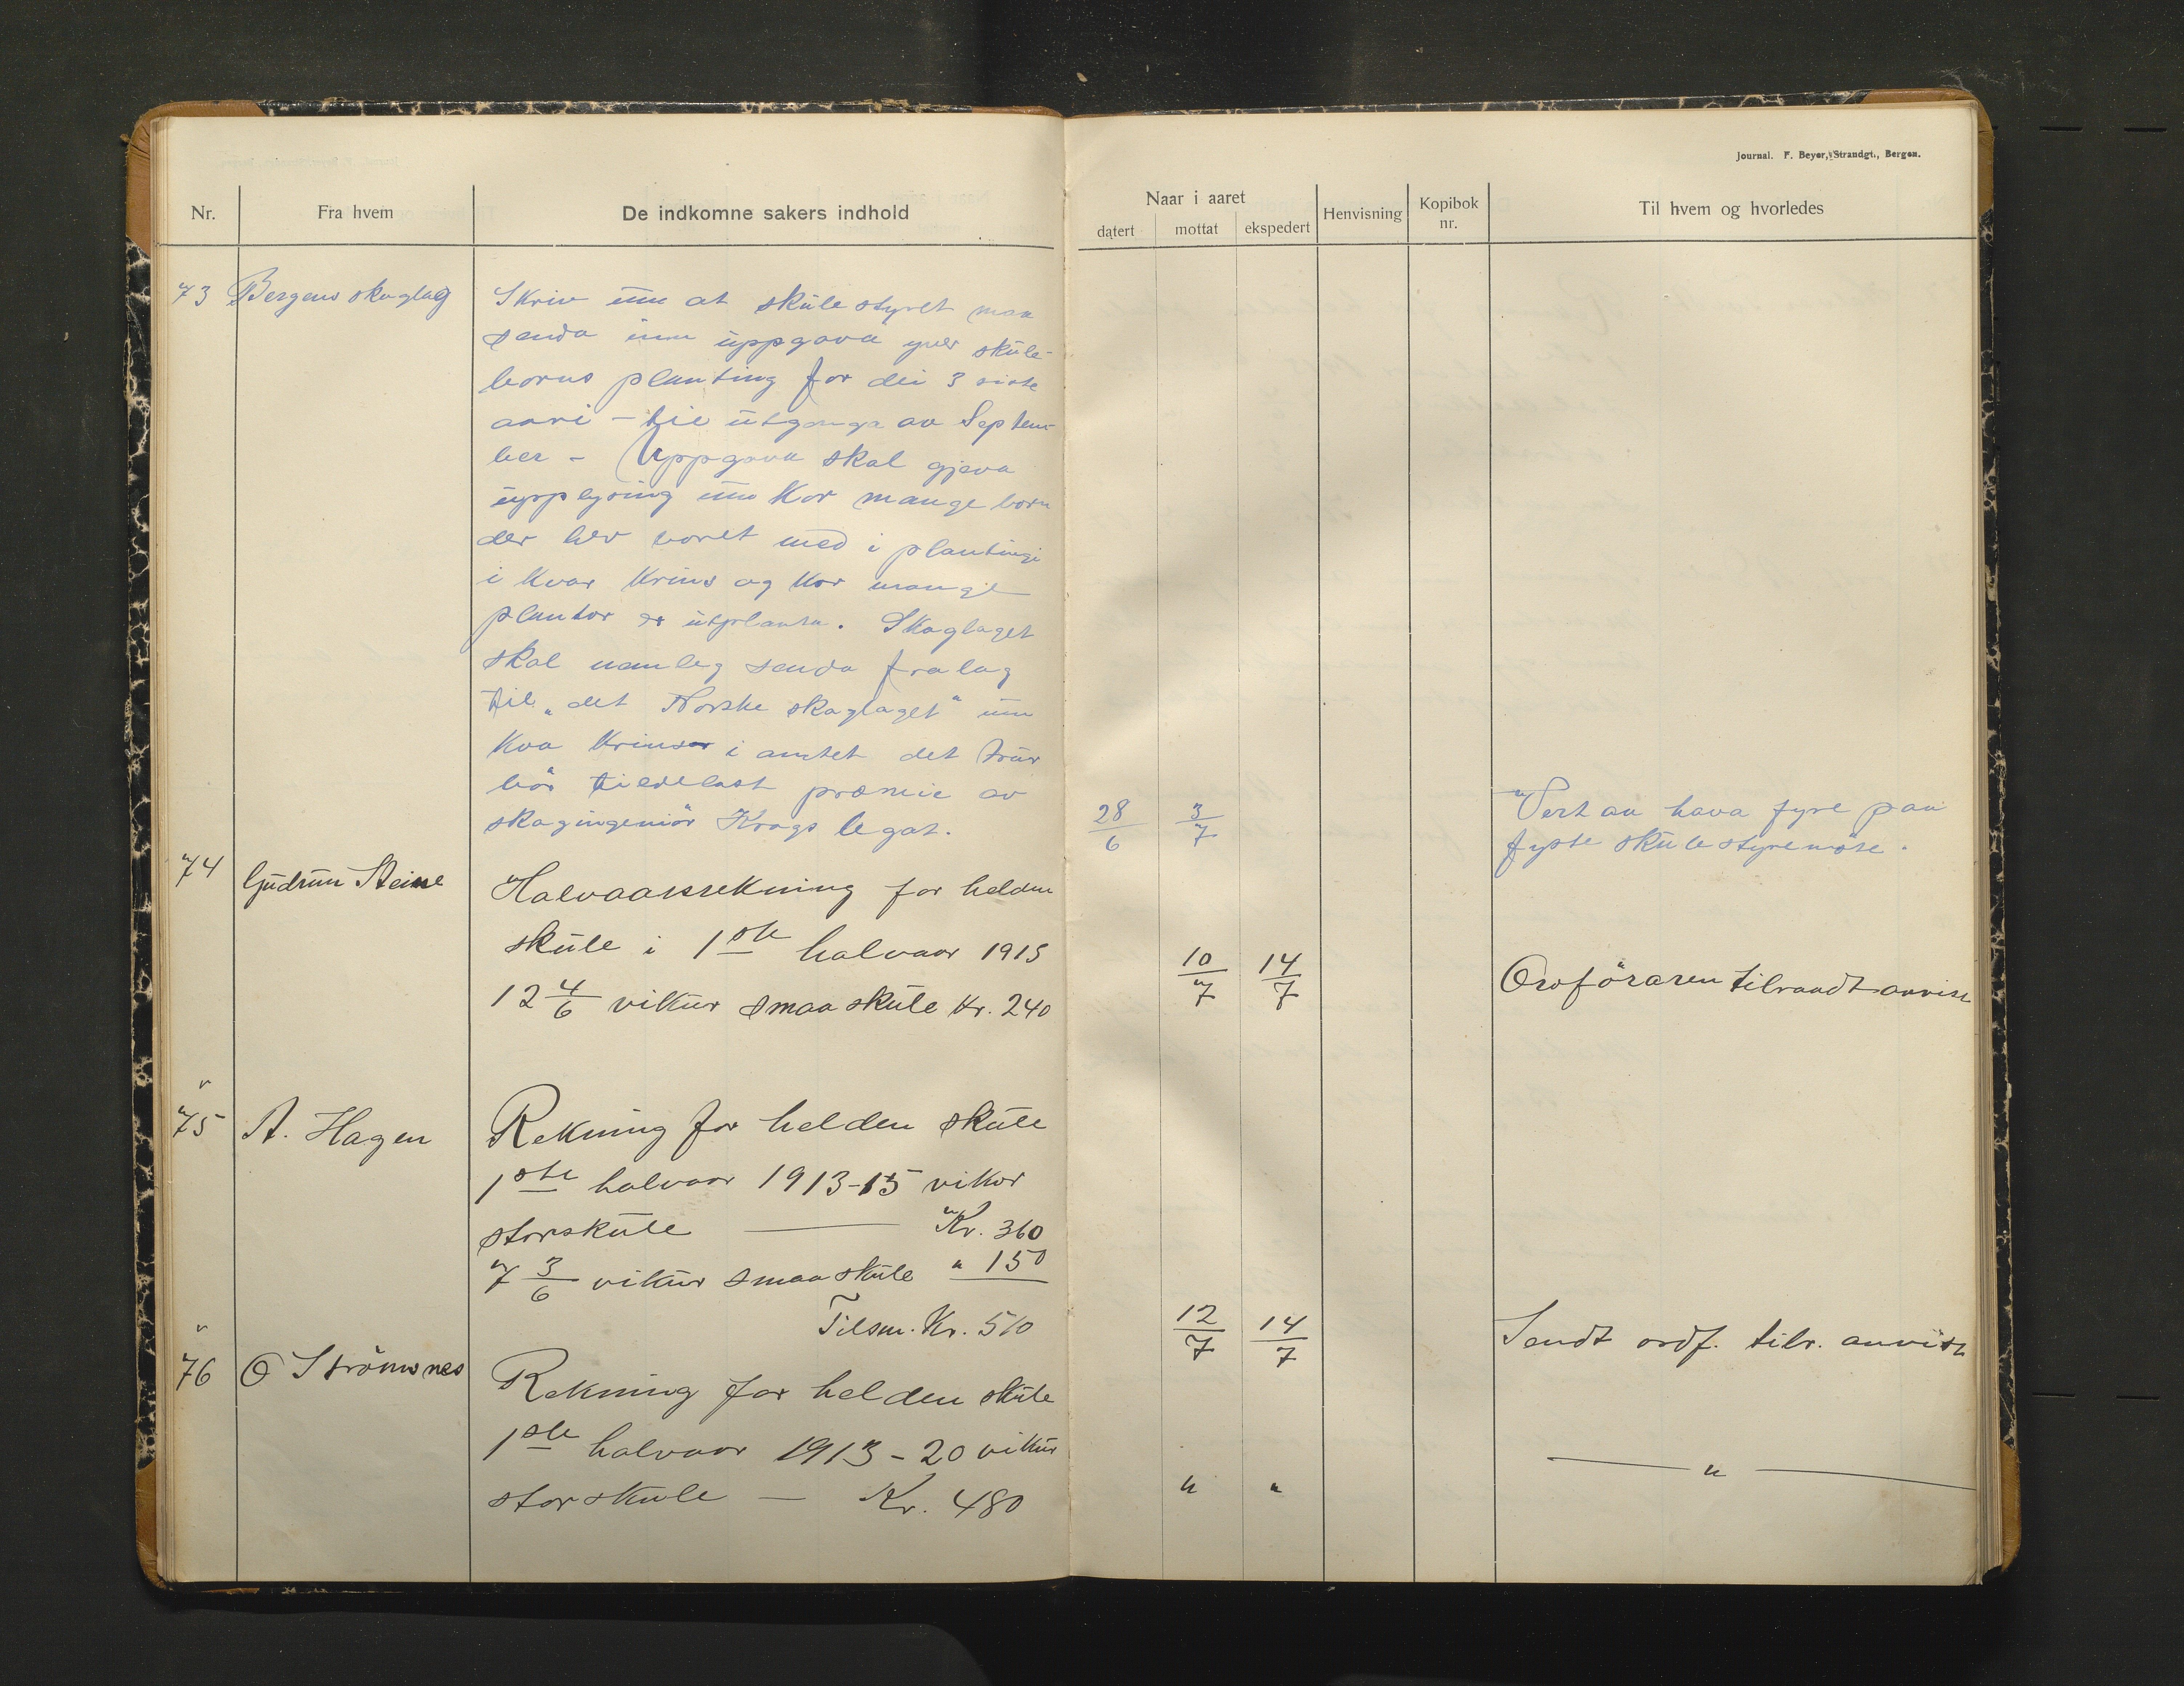 Journal. F. Beyer, Strandgt., Bergen.
Nr.
Fra hvem
De indkomne sakers indhold
Naar i aaret
datert
mottat
ekspedert
Henvisning
Kopibok
nr.
Til hvem og hvorledes
73 Bergens skoglag
Skriv um at skulestyret maa
senda inn uppgava yver skule-
borns planting for dei 3 siste
aari - til utgonga av Septem-
ber - Uppgava skal gjeva
upplysing um kor mange born
der hev voret med i plantingi
i kvar krins og kor mange
plantor er utplanta. Skoglaget
skal nemleg senda fralag
til "det Norske skoglaget" um
kva krinsar i amtet det trur
bör tiledelast præmie av
skogingeniör Krags legat.
28/6 3/7
Vert aa hava fyre paa
fyste skulestyremöte.
74 Gudrun Steine
Halvaarsrekning for helden
skule i 1ste halvaar 1913
12 4/6 vikur smaaskule Kr. 240
10/7 14/7
Ordföraren tilraadt anvist
75 A. Hagen
Rekning for helden skule
1ste halvaar 1913-15 vikor
storskule Kr. 360
7 3/6 vikur smaaskule " 150
Tilsm. Kr. 510
12/7 14/7
Sendt ordf. tilr. anvist
76 O Strömsnes
Rekning for helden skule
1ste halvaar 1913 - 20 vikur
storskule - Kr. 480
" " — " —